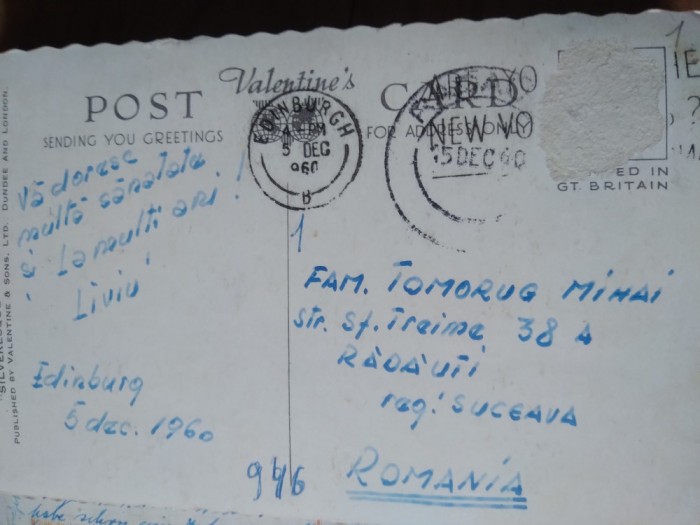 Valentine's
POST CARD
SENDING YOU GREETINGS
FOR ADDRESS ONLY
EDINBURGH
4 PM
5 DEC
960
B
NEW YO
5 DEC
IN
GT. BRITAIN
Vă doresc
multă sănatate
și La multi ani!
Liviu
Edinburg
5 dec. 1960
1
1
FAM. TOMORUG MIHAI
str. Sf. Treime 38 A
RĂDĂUTI
reg. SUCEAVA
ROMANIA
946
PUBLISHED BY VALENTINE & SONS, LTD., DUNDEE AND LONDON.
habe schon